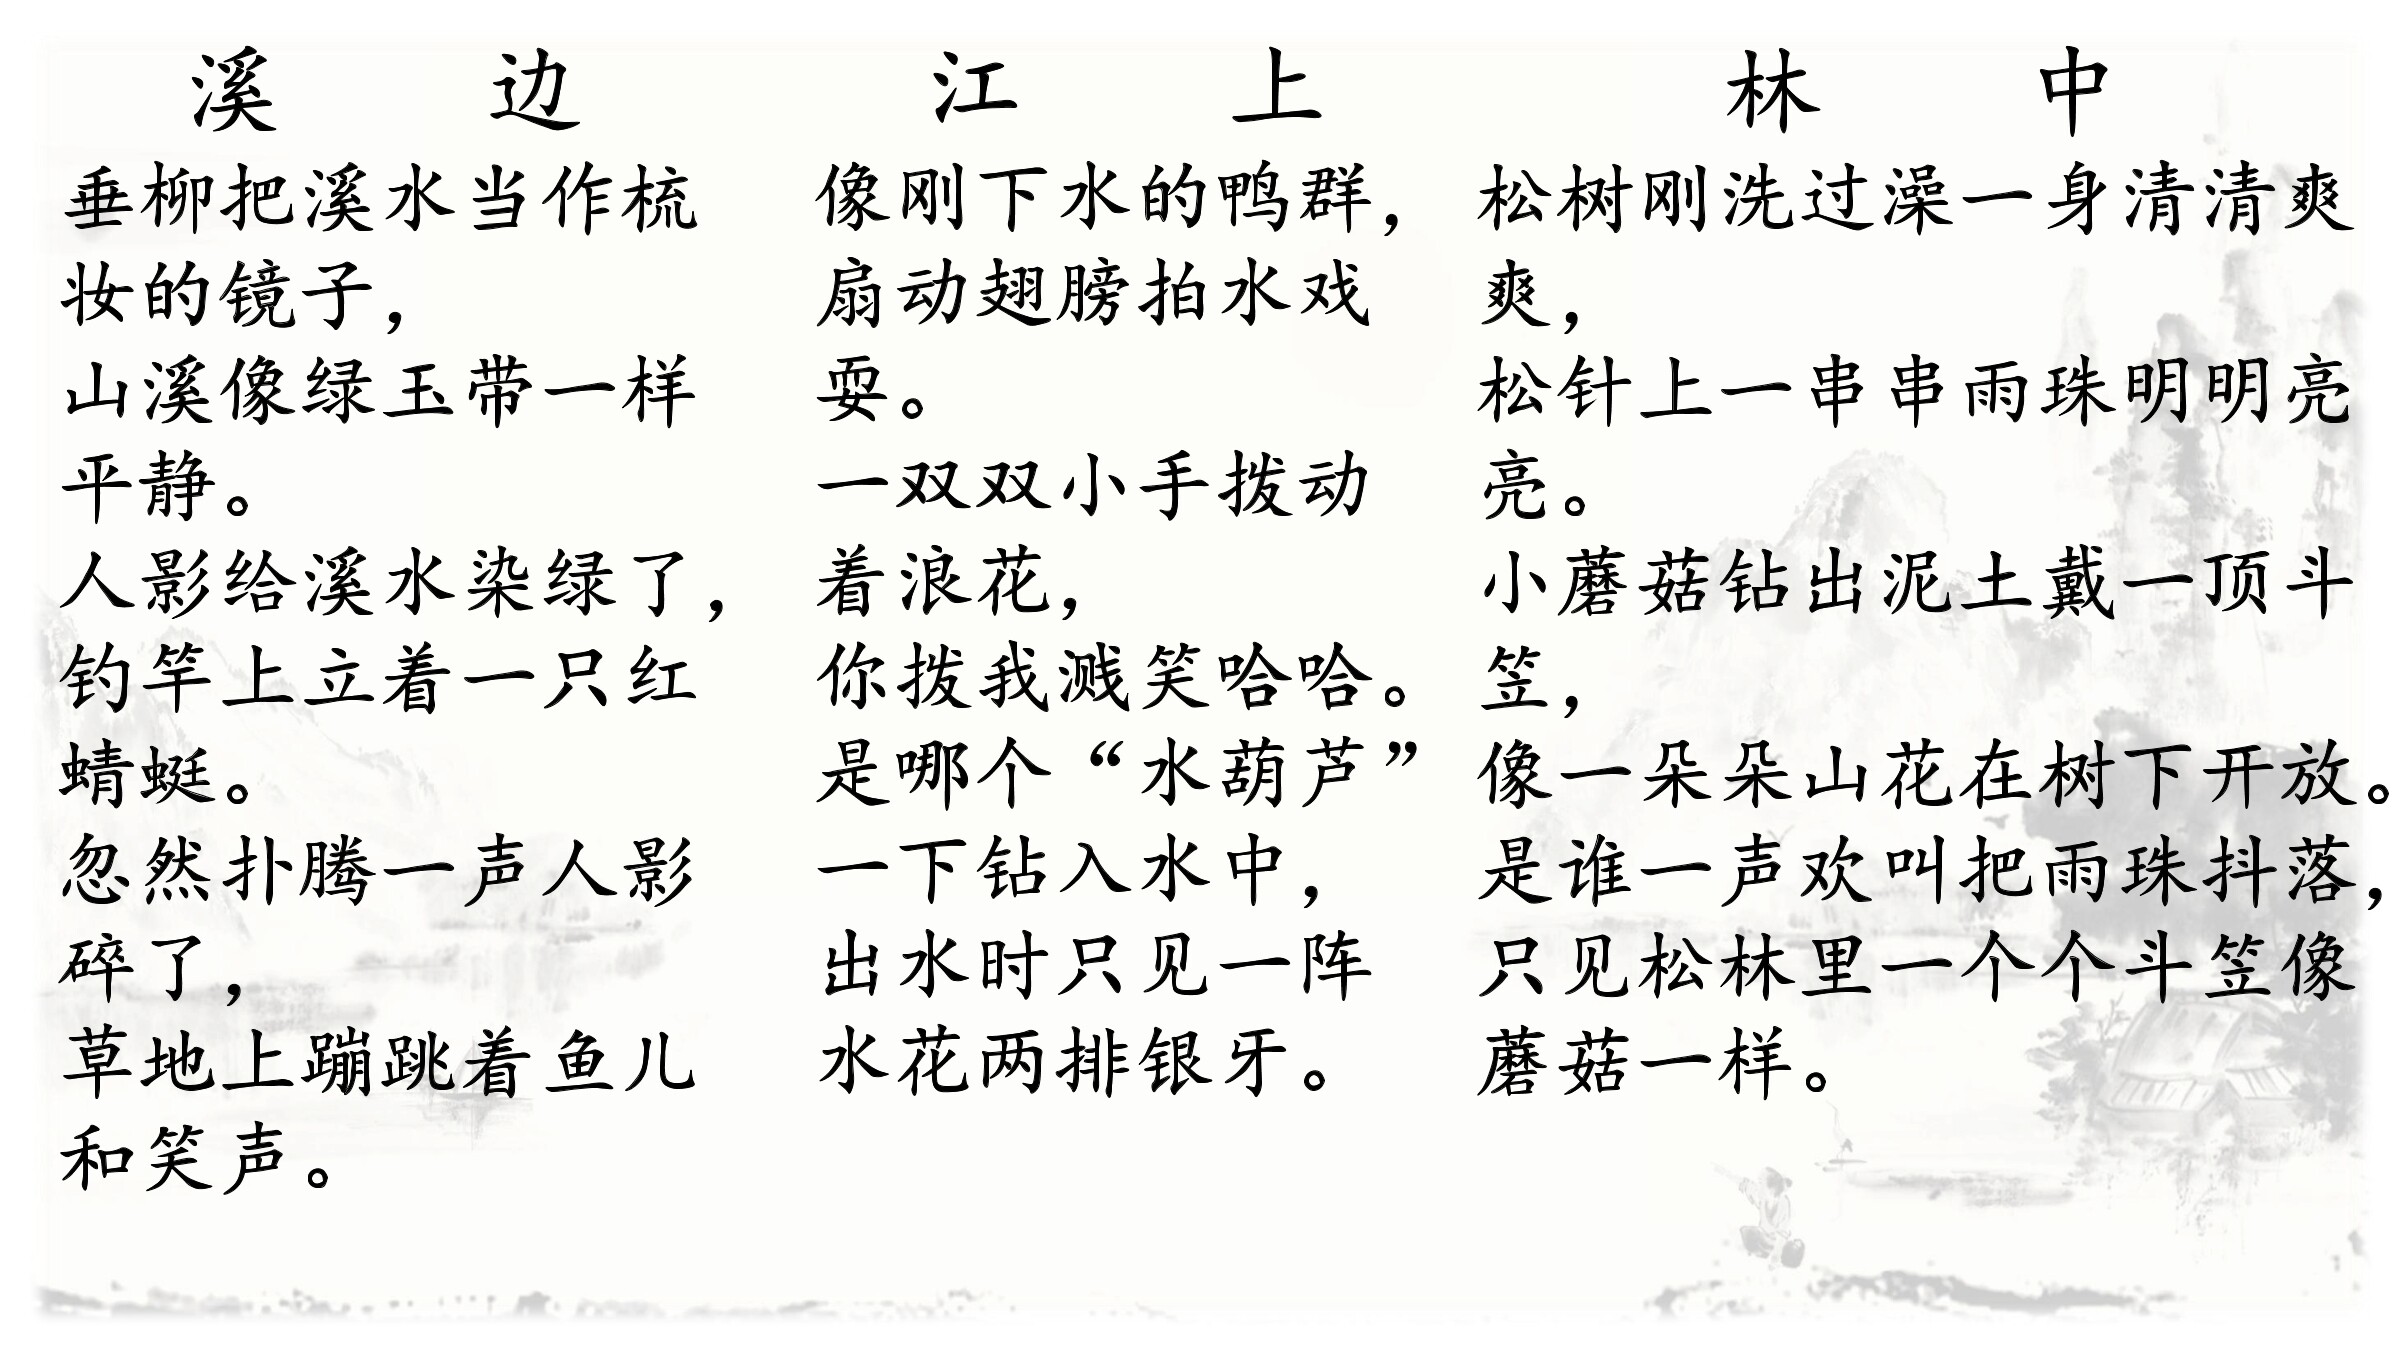 溪 边
垂柳把溪水当作梳
妆的镜子，
山溪像绿玉带一样
平静。
人影给溪水染绿了，
钓竿上立着一只红
蜻蜓。
忽然扑腾一声人影
碎了，
草地上蹦跳着鱼儿
和笑声。
江 上
像刚下水的鸭群，
扇动翅膀拍水戏
耍。
一双双小手拨动
着浪花，
你拨我溅笑哈哈。
是哪个“水葫芦”
一下钻入水中，
出水时只见一阵
水花两排银牙。
林 中
松树刚洗过澡一身清清爽
爽，
松针上一串串雨珠明明亮
亮。
小蘑菇钻出泥土戴一顶斗
笠，
像一朵朵山花在树下开放。
是谁一声欢叫把雨珠抖落，
只见松林里一个个斗笠像
蘑菇一样。